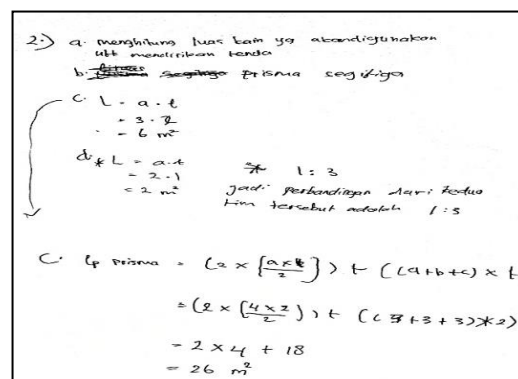 2.) a. menghitung luas kain yg akan digunakan
utk mendirikan tenda
b. prisma segitiga
c. L = a . t
= 3 . 2
= 6 m²
d. * L = a.t
= 2 . 1
= 2 m²
* 1 : 3
jadi perbandingan dari kedua
tim tersebut adalah 1:3
C. Lp prisma = (2 × [a×t/2]) + ((a+b+c) × t
= (2 × [4×2/2]) + ((3+3+3)×2)
= 2 × 4 + 18
= 26 m²